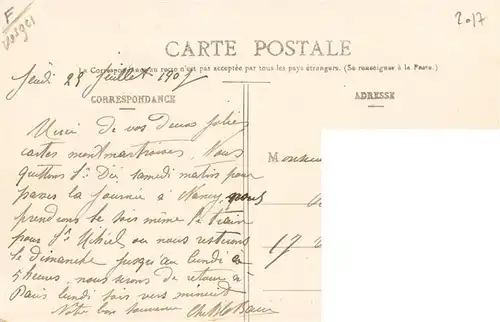 F
Vosges
2017
CARTE POSTALE
La Correspondance au recto n'est pas acceptée par tous les pays étrangers. (Se renseigner à la Poste.)
Jeudi 25 Juillet 190
CORRESPONDANCE
ADRESSE
Merci de vos deux jolies
cartes montmartroises. Nous
quittons St Dié samedi matin pour
passer la journée à Nancy, nous
prendrons le soir même le train
pour St Mihiel où nous resterons
le dimanche jusqu'au lundi à
5 heures, nous serons de retour à
Paris lundi soir vers minuit
Notre bon souvenir
Monsieur
17